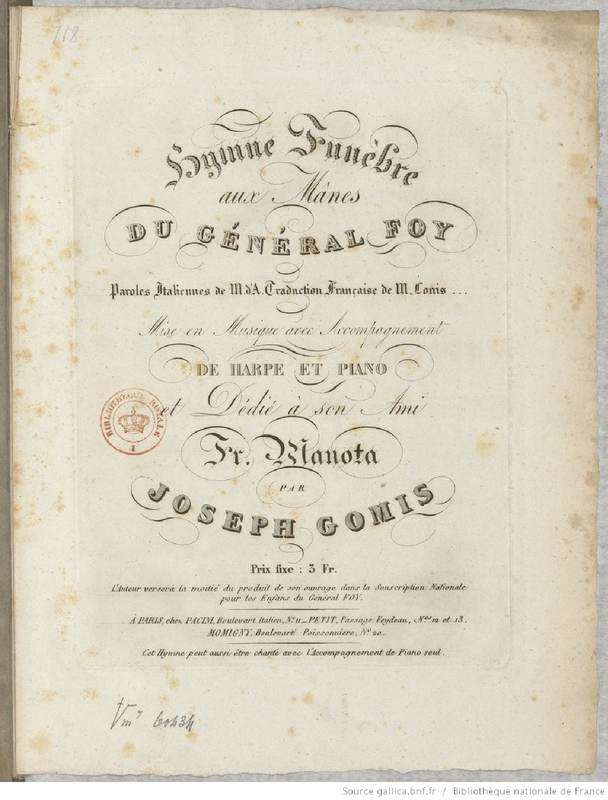 118
Hymne Funèbre
aux Mânes
DU GÉNÉRAL FOY
Paroles Italiennes de M. d'A. Traduction Française de M. Louis ...
Mise en Musique avec Accompagnement
DE HARPE ET PIANO
et Dédié à son Ami
BIBLIOTHEQUE ROYALE
1
Fr. Manota
PAR
JOSEPH GOMIS
Prix fixe : 3 Fr.
L'Auteur versera la moitié du produit de son ouvrage dans la Souscription Nationale
pour les Enfans du Général FOY.
À PARIS, chez PACINI, Boulevart Italien, N.º 11_ PETIT, Passage Feydeau, N.ºs 12 et 13.
MOMIGNY, Boulevart Poissonniere, N.º 20.
Cet Hymne peut aussi être chanté avec l'Accompagnement de Piano seul.
Vm7 60434
Source gallica.bnf.fr / Bibliothèque nationale de France